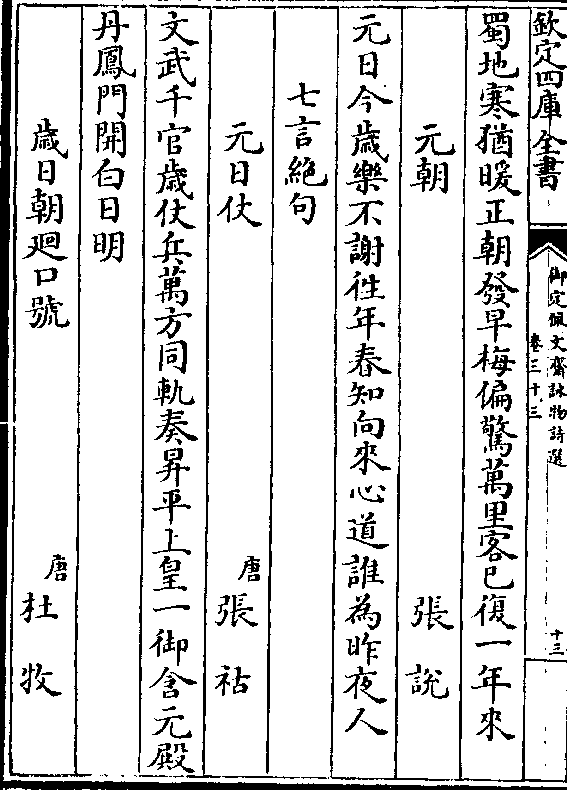 欽定四庫全書
御定佩文齋詠物詩選
卷三十三
十三
蜀地寒猶暖正朝發早梅偏驚萬里客已復一年來
元朝 張說
元日今歲樂不謝往年春知向來心道誰為昨夜人
七言絶句
元日仗 唐張祜
文武千官歲仗兵萬方同軌奏昇平上皇一御含元殿
丹鳳門開白日明
歲日朝廻口號 唐杜牧